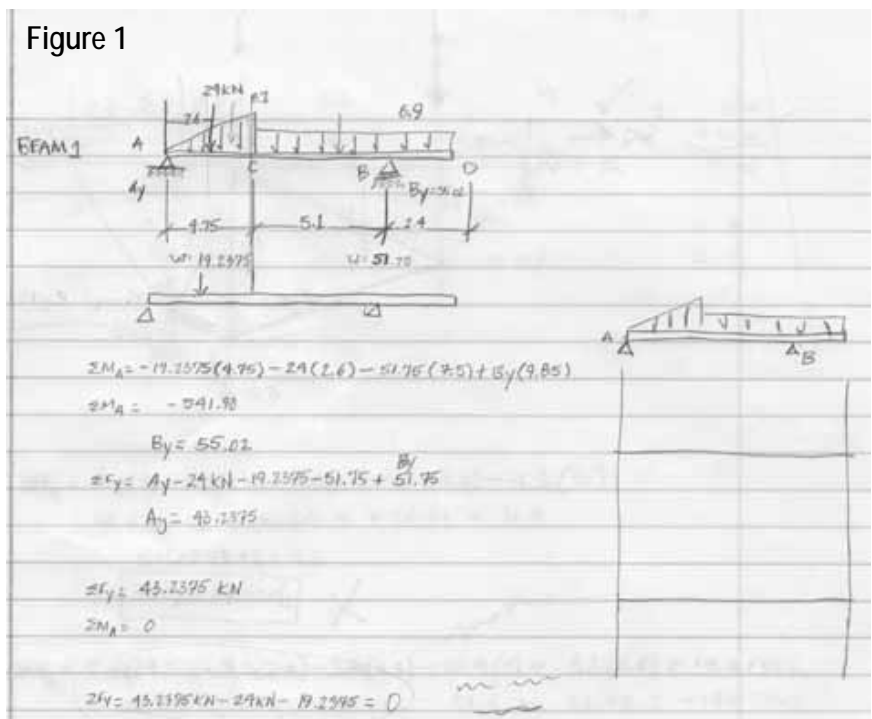 Figure 1
24KN 8.1
2.6 6.9
BEAM 1 A
C B D
Ay By=55.02
4.75 5.1 2.4
W=19.2375 W=51.75
ΣMA= -19.2375(4.75) - 24(2.6) - 51.75(7.5) + By(9.85)
A B
ΣMA= -541.90
By= 55.02
By
ΣFy= Ay - 24KN - 19.2375 - 51.75 + 51.75
Ay= 43.2375
ΣFy= 43.2375 KN
ΣMA= 0
ΣFy= 43.2375KN - 24KN - 19.2375 = 0